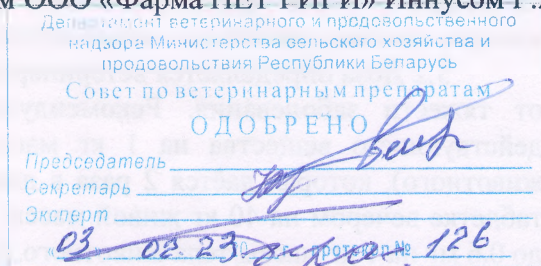 м ООО «Фарма ПЕТ РИГИ» Иннусом Г.
Департамент ветеринарного и продовольственного
надзора Министерства сельского хозяйства и
продовольствия Республики Беларусь
Совет по ветеринарным препаратам
ОДОБРЕНО
Председатель
Секретарь
Эксперт
03 02.23 протокол № 126